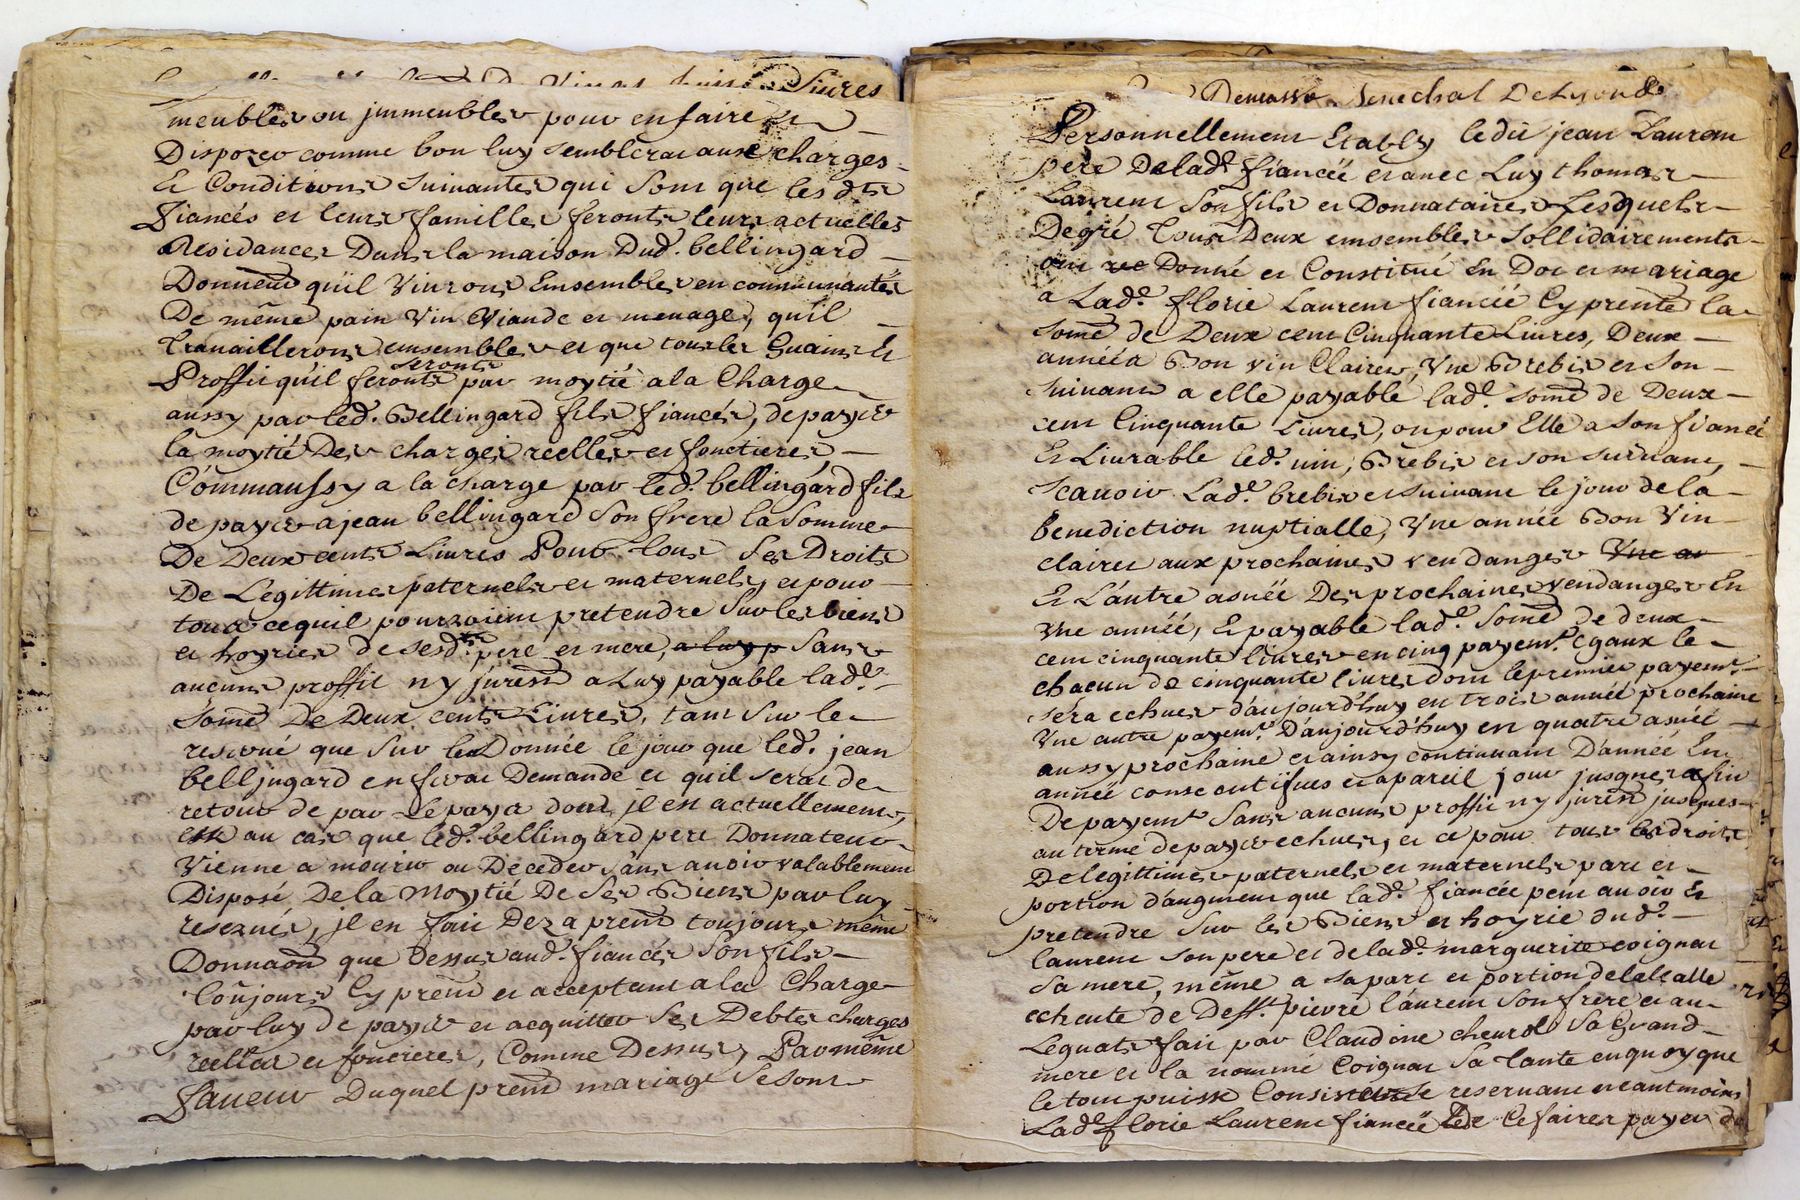 Vingt huit Livres
meubles ou jmmeubles pour en faire Et
Disposer comme bon luy semblerat aux charges
Et Conditions suivantes qui sont que les dts
fiancés et leurs familles feronts leurs actuelles
Residances Dans la maison Dud. bellingard
Donneur quil Vivrons Ensembles en communautés
De même pain Vin Viande et menage, qu'il
Travaillerons emsembles et que tous les Guains Et
Proffit quil feronts seronts par moytié a la Charge
aussy par led. Bellingard fils fiancés, de payer
la moytié Des charges reelles et fonctieres
Comm'aussy a la charge par led. bellingard fils
de payer a jean bellingard Son frere la Somme
De Deux cents Livres Pour tous Ses Droits
De Legittimes paternels et maternels, et pour
tout ce quil pourroient pretendre Sur les biens
et hoyries de sesd. pere et mere, a luy p Sans
aucuns proffit ny jnrest a Luy payable lad.e
Some De Deux cents Livres, tant Sur le
reservé que Sur le Donnée le jour que led. jean
belljngard en ferat Demande et quil serat de
retour de par Le paya dont jl est actuellement,
Et au cas que led. bellingard pere Donnateur
Vienne a mourir ou Deceder Sans avoir valablement
Disposé De la Moytié De Ses Biens par luy
reservés, jl en fait Dez a prent toujours même
Donnaon que Dessus aud. fiancés Son fils
Toûjours Cy prent et acceptant a la Charge
par luy de payer et acquitter Ses Debtes charges
reelles et foncieres, Comme Dessus, Par même
faveur Duquel prent mariage Se sont
Senechal De Lyon &
Personnellement Etably ledit jean Laurent
pere De lad.e fiancée et avec Luy thomas
Laurent Son fils et Donnataires Lesquels
De gré Tous Deux emsembles Sollidairements
ont Donné et Constitué En Dot et mariage
a Lad.e florie Laurent fiancée Cy prente la
Some de Deux cent Cinquante Livres, Deux
années Bon vin Claires, Vne Brebis et Son
Suivant a elle payable lad.e some de Deux
cent Cinquante Livres, ou pour Elle a Son fiancé
Et Livrable led. vin, Brebis et son suivant,
Scavoir Lad.e brebis et suivant le jour de la
benediction nuptialle, Vne année Bon Vin
claires aux prochaines vendanges Vne au
Et L'autre asnée Des prochaines vendanges En
Vne année, Et payable lad.e Some de deux
cent cinquante livres en cinq payemt. Egaux le
chacun de cinquante livres dont le premier payemt.
sera echues d'aujourd'huy en trois année prochaine
Vne autre payemt. D'aujourd'huy en quatre asnée
aussy prochaine et ainsy continuant D'année En
année consecutifves et a pareil jour jusques a fin
De payemt Sans aucuns proffit ny jnrest jusques
au terme de payer echues, et ce pour tous les droits
De legittimes paternels et maternels part et
portion d'augment que lad.e fiancée peut avoir Et
pretendre Sur les Biens et hoyrie dud.
laurent son pere et de lad.e marguerite coignat
Sa mere, même a sa part et portion de lad.e alle
echeute de Deff. pierre laurent Son frere et au
Leguats fait par Claudine chevrot Sa Grand
mere et la nommé Coignat Sa Tante en quoy que
le tout puisse Consister Se reservant neantmoins
Lad.e florie Laurent fiancée De Ce faires payer